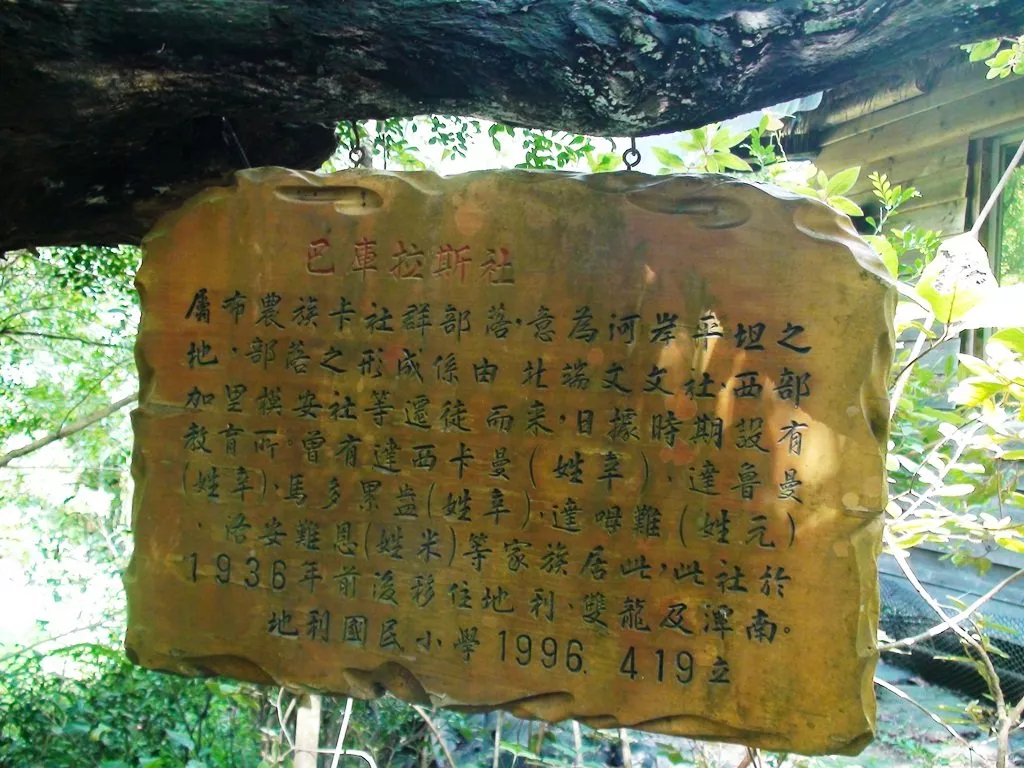 巴庫拉斯社
屬布農族卡社群部落,意為河岸平坦之
地,部落之形成係由 北端文文社,西部
加里模安社等遷徒而来,日據時期設有
教育所。曾有達西卡曼(姓幸)、達魯曼
(姓幸)、馬多累盎(姓幸)、達哞難(姓元)
、洛安難恩(姓米)等家族居此,此社於
1936年前後移住地利、雙龍及潭南。
地利國民小學 1996. 4.19 立